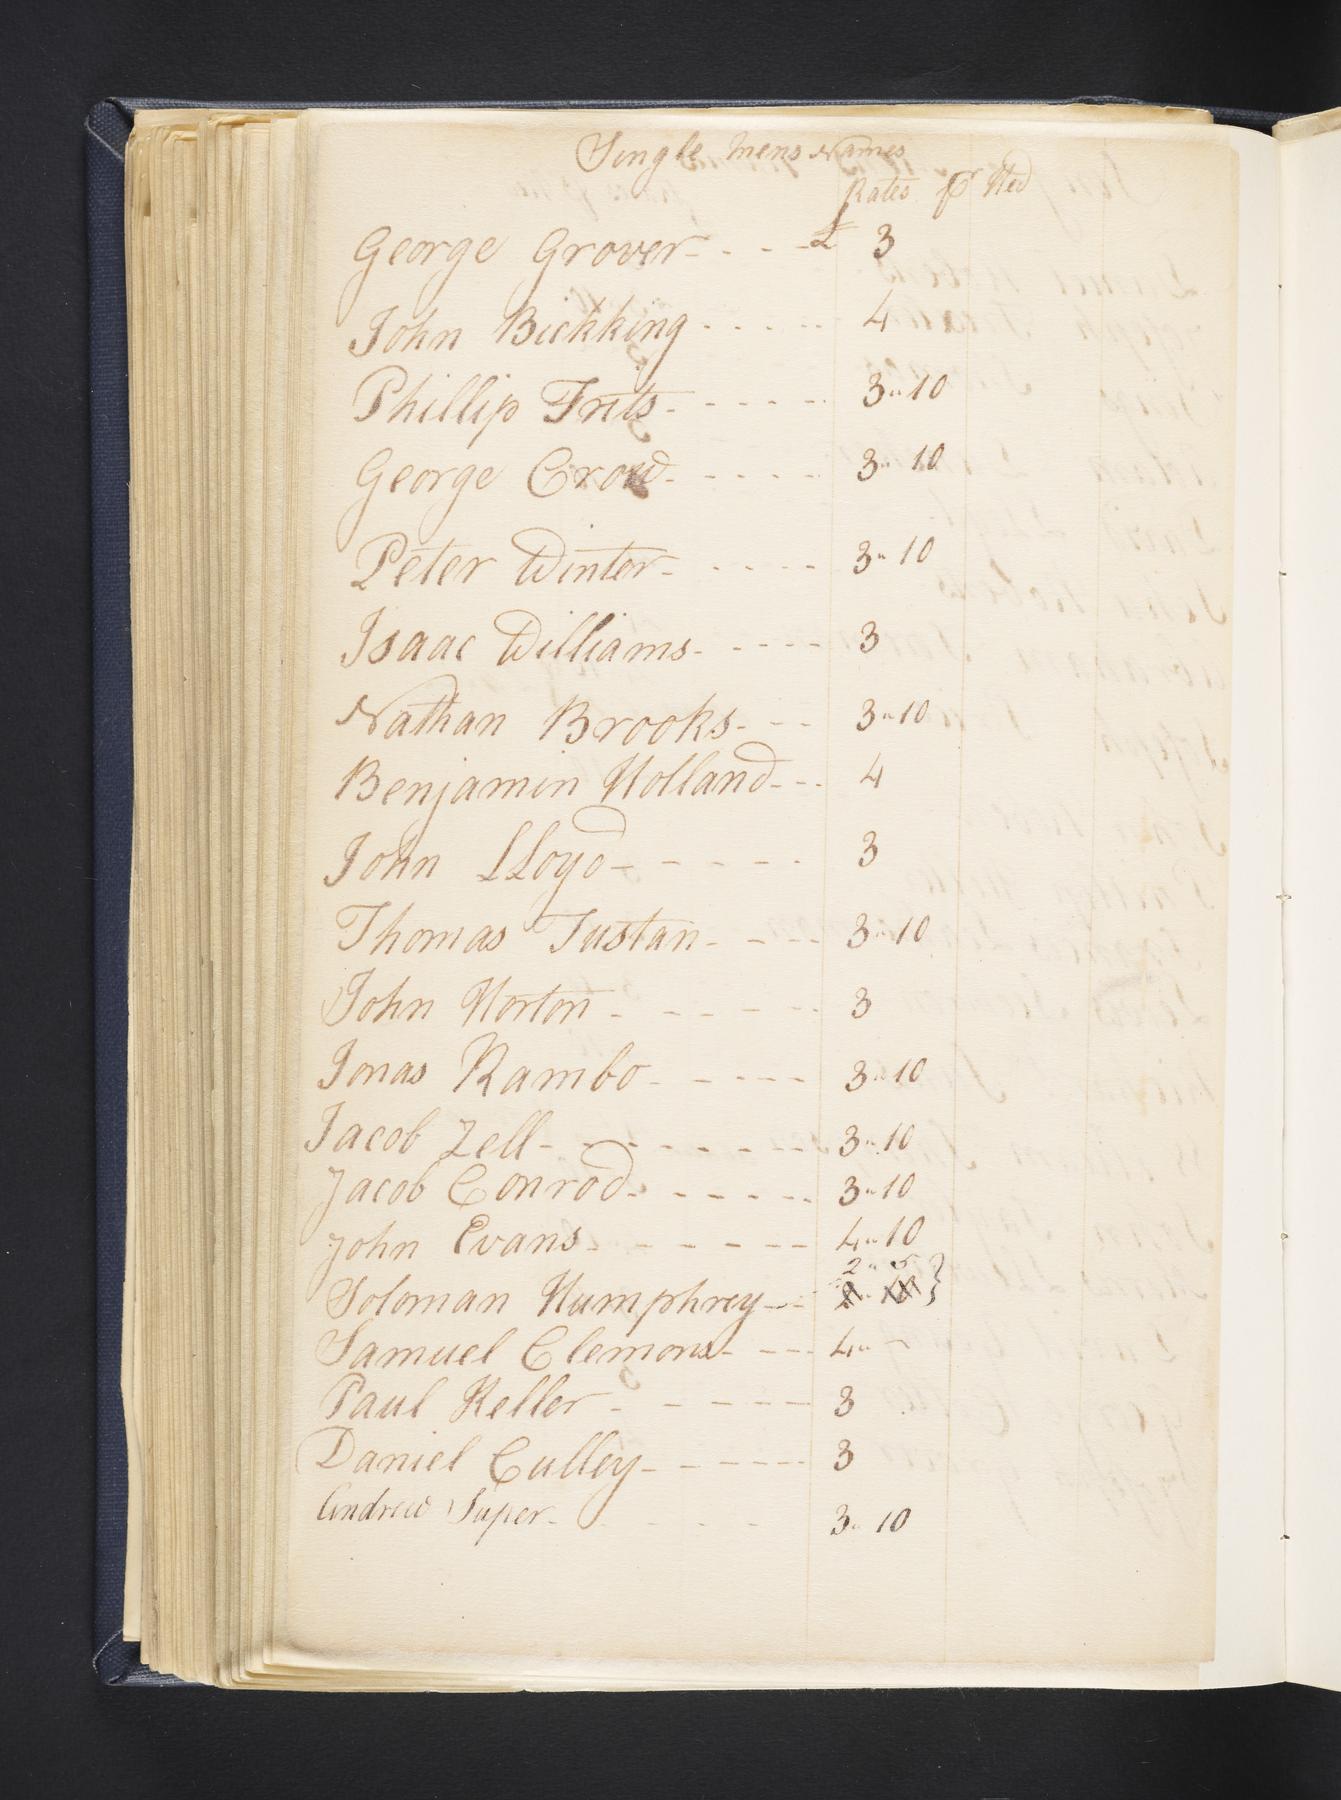 Single Mens Names
Rates pr Hed
George Grover - - - - £ 3
John Bickking - - - - - 4
Phillip Frits - - - - - 3"10
George Crow - - - - - 3"10
Peter Winter - - - - - 3"10
Isaac Williams - - - - - 3
Nathan Brooks - - - 3"10
Benjamin Holland - - - 4
John LLoyd - - - - - 3
Thomas Tustan - - - - 3"10
John Horton - - - - - 3
Jonas Rambo - - - - - 3"10
Jacob Zell - - - - - - - 3"10
Jacob Conrod - - - - - - 3"10
John Evans - - - - - - 4"10
2"5
Soloman Humphrey - - - }
Samuel Clemons - - - - 4"-
Paul Keller - - - - - - 3
Daniel Culley - - - - - - 3
Andrew Super - - - - - - 3"10